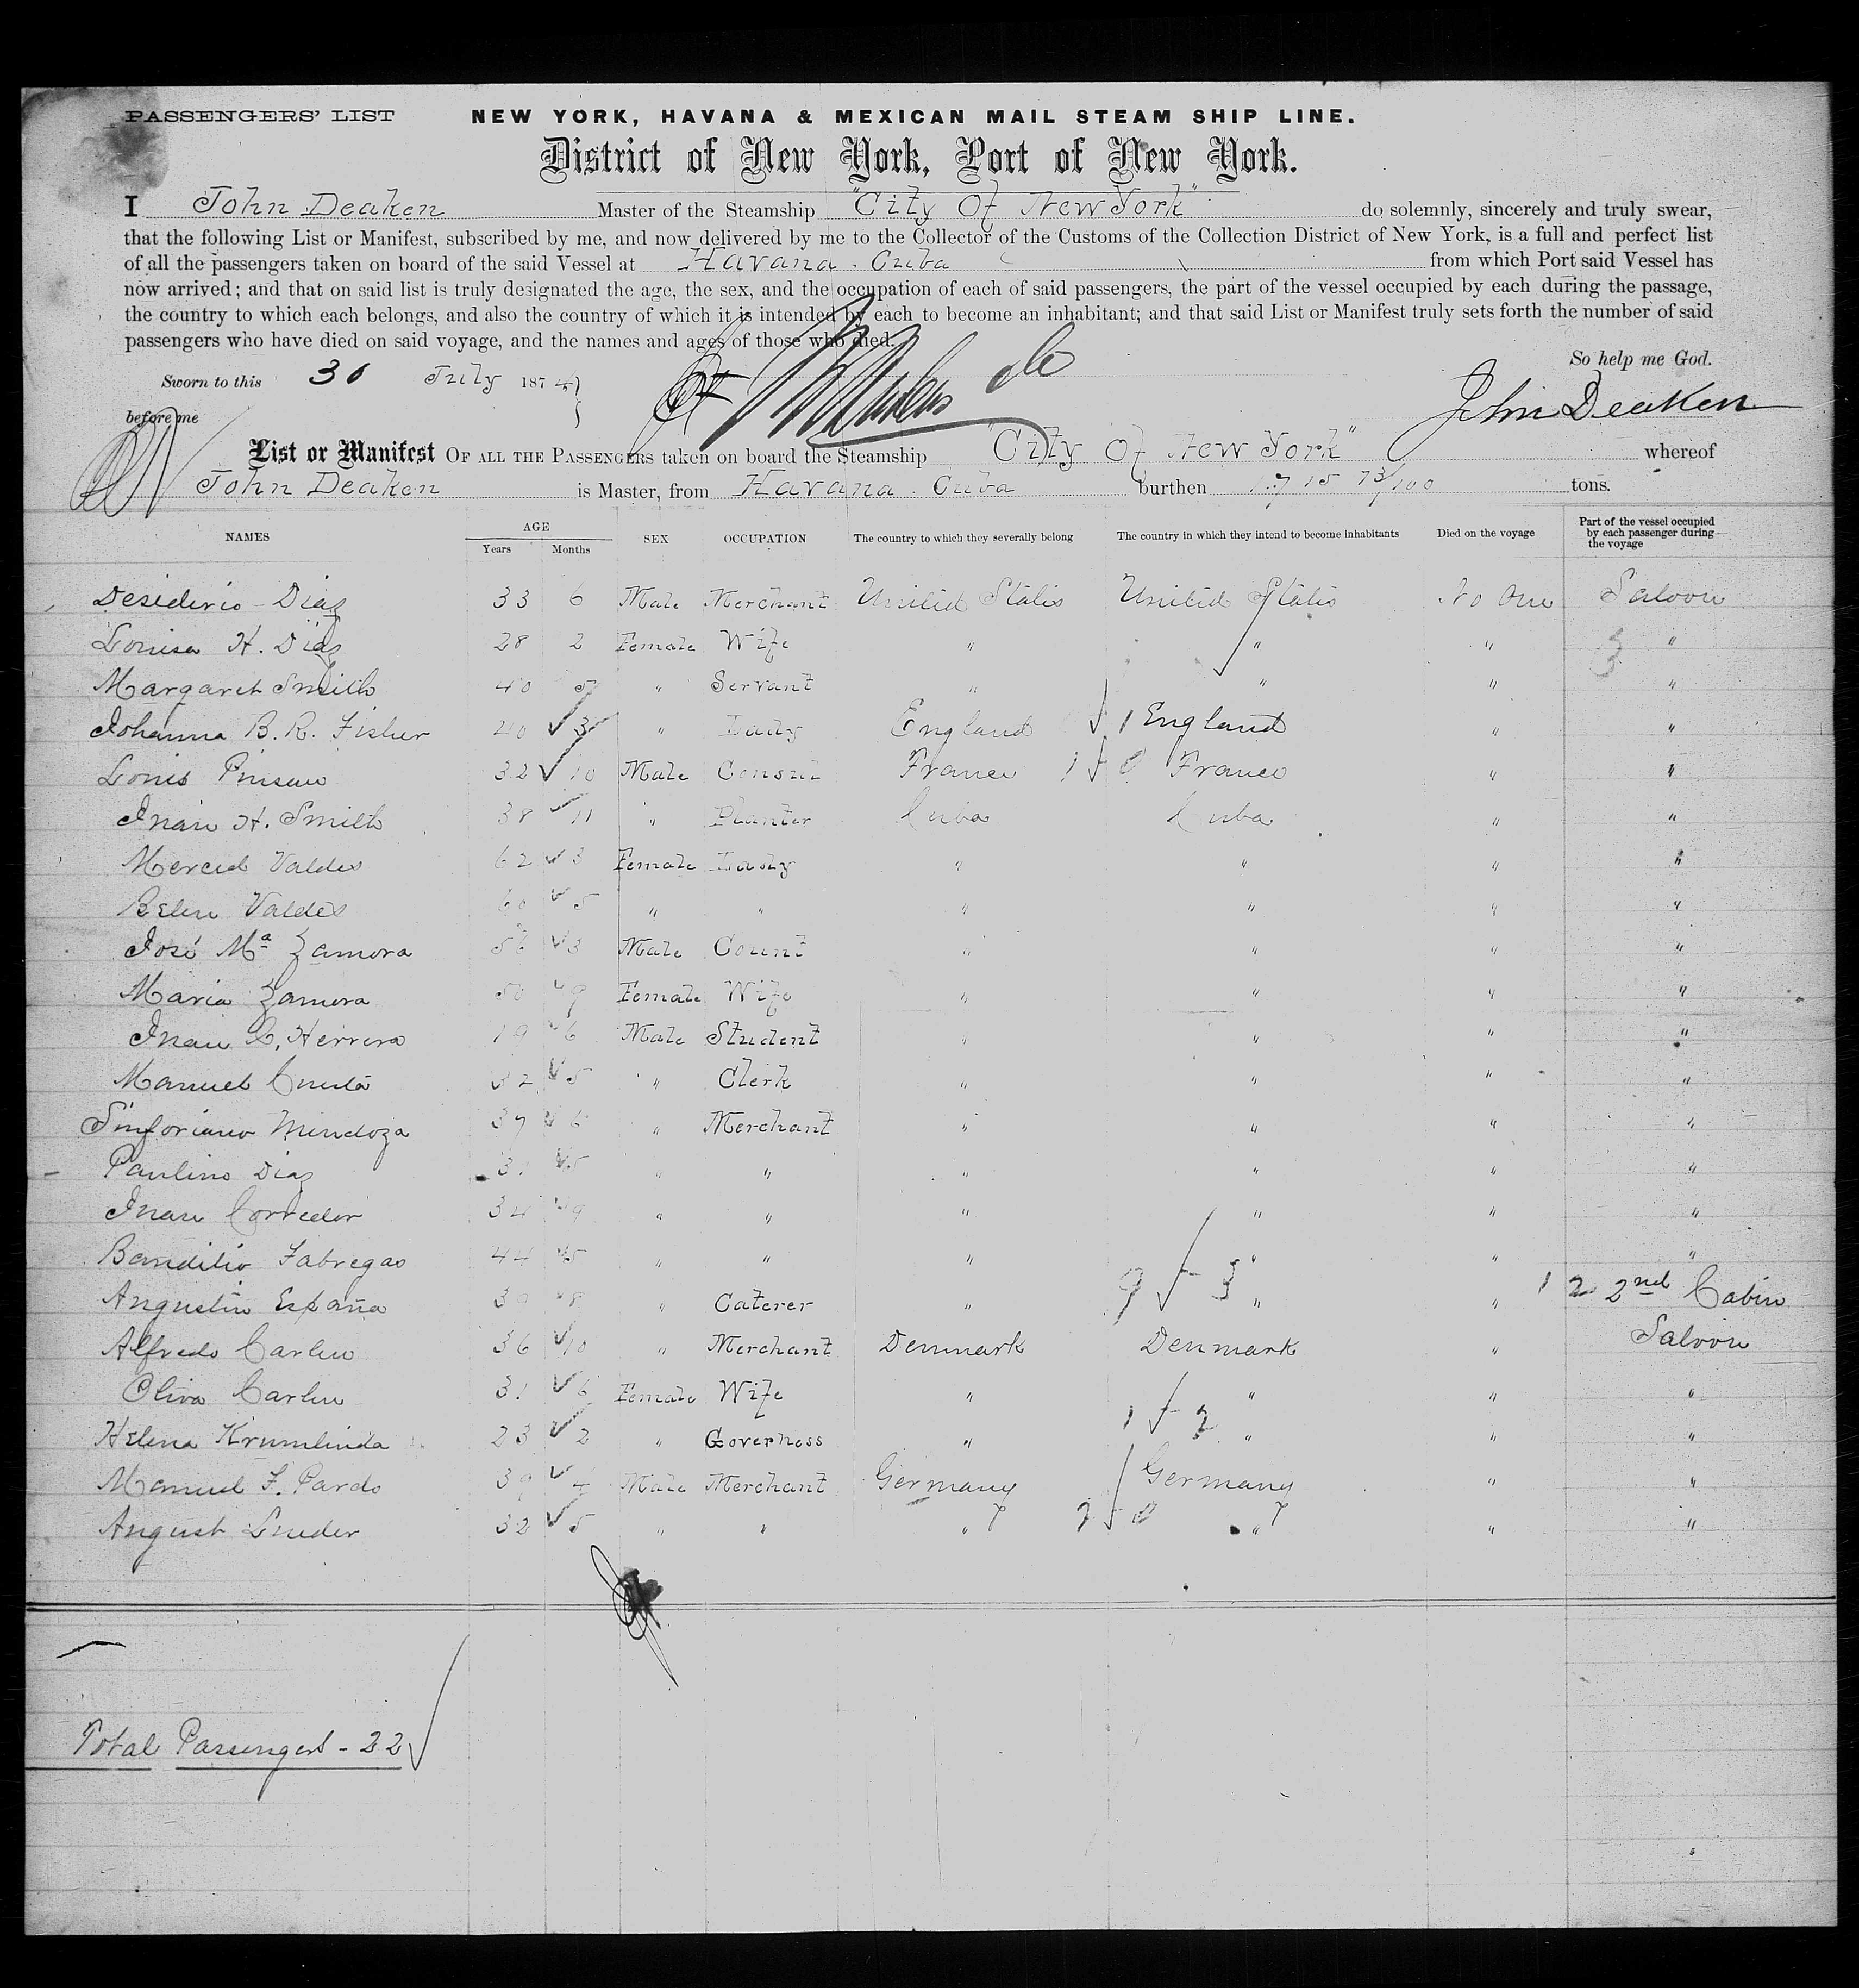 PASSENGERS' LIST NEW YORK, HAVANA & MEXICAN MAIL STEAM SHIP LINE.
District of New York, Port of New York.
I John Deaken Master of the Steamship "City Of New York" do solemnly, sincerely and truly swear,
that the following List or Manifest, subscribed by me, and now delivered by me to the Collector of the Customs of the Collection District of New York, is a full and perfect list
of all the passengers taken on board of the said Vessel at Havana. Cuba from which Port said Vessel has
now arrived; and that on said list is truly designated the age, the sex, and the occupation of each of said passengers, the part of the vessel occupied by each during the passage,
the country to which each belongs, and also the country of which it is intended by each to become an inhabitant; and that said List or Manifest truly sets forth the number of said
passengers who have died on said voyage, and the names and ages of those who died.
So help me God.
Sworn to this 30 July 1874
before me John Deaken
List or Manifest OF ALL THE PASSENGERS taken on board the Steamship "City Of New York" whereof
John Deaken is Master, from Havana. Cuba burthen 1715 73/100 tons.
NAMES AGE Years Months SEX OCCUPATION The country to which they severally belong The country in which they intend to become inhabitants Died on the voyage Part of the vessel occupied by each passenger during the voyage
Desiderio Diaz 33 6 Male Merchant United States United States No One Saloon
Louisa H. Diaz 28 2 Female Wife " " " "
Margaret Smith 40 5 " Servant " " " "
Johanna B. R. Fisher 40 3 " Lady England 1 England " "
Louis 32 10 Male Consul France 1 0 France " "
Juan H. Smith 38 11 " Planter Cuba Cuba " "
Merced Valdes 62 3 Female Lady " " " "
Belen Valdes 60 5 " " " " " "
José Mª Zamora 56 3 Male Count " " " "
Maria Zamora 50 9 Female Wife " " " "
Juan C. Herrera 19 6 Male Student " " " "
Manuel 32 5 " Clerk " " " "
Sinforiano Mendoza 37 6 " Merchant " " " "
Paulino Diaz 31 5 " " " " " "
Juan Corredor 34 9 " " " " " "
Bandilio Fabregas 44 5 " " " " " "
Augustin España 39 8 " Caterer " 9 3 " " 1 2 2nd Cabin
Alfredo Carlen 36 10 " Merchant Denmark Denmark " Saloon
Oliva Carlen 31 6 Female Wife " " " "
Helena Krumlinda 23 2 " Governess " 1 2 " " "
Manuel F. Pardo 39 4 Male Merchant Germany Germany " "
August Lueder 32 5 " " " 2 0 " " "
Total Passengers - 22